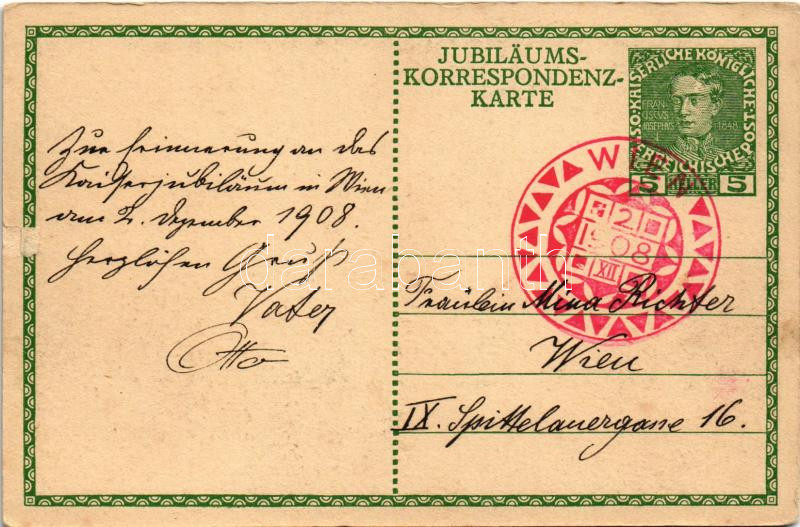 JUBILÄUMS-
KORRESPONDENZ-
KARTE
KAISERLICHE KÖNIGLICHE
FRAN
CISCVS
IOSEPHVS
1848
ÖSTERREICHISCHE POST
5 HELLER 5
WIEN
2
1908
XII
Zur Erinnerung an das
Kaiserjubiläum in Wien
am 2. Dezember 1908.
Herzlichen Gruß
Vater
Otto
Fräulein Mina Richter
Wien
IX. Spittelauergasse 16.
darabanth